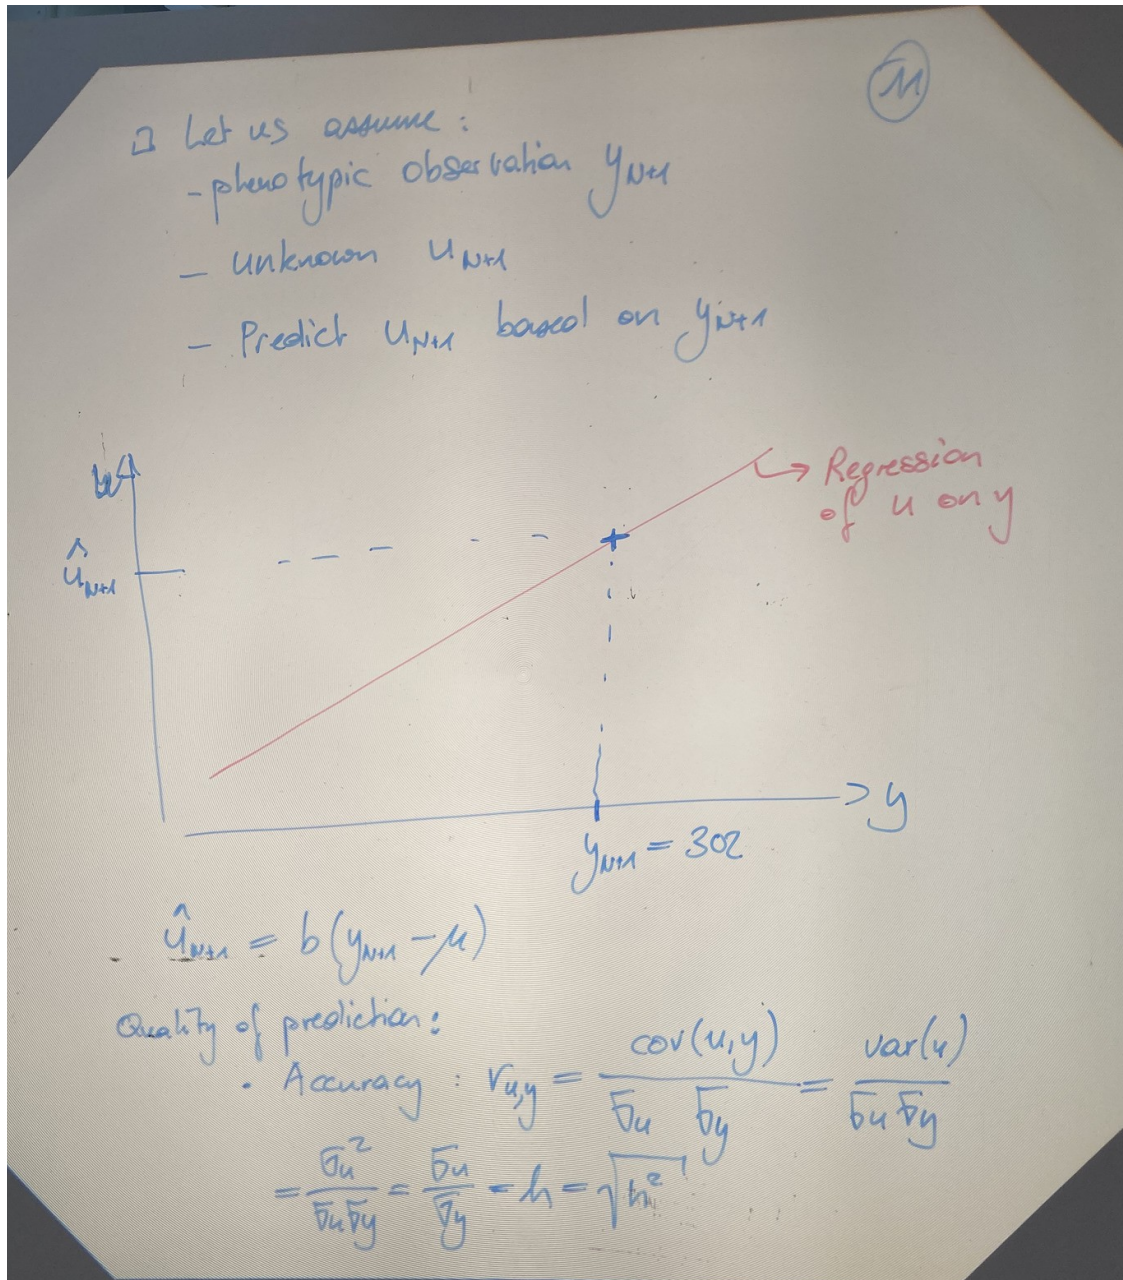 11
□ Let us assume:
- phenotypic observation y_{N+1}
- unknown u_{N+1}
- Predict u_{N+1} based on y_{N+1}
u
Regression
of u on y
û_{N+1}
y
y_{N+1} = 302
û_{N+1} = b(y_{N+1} - μ)
Quality of prediction:
· Accuracy : r_{u,y} = cov(u,y) / (σ_u σ_y) = var(u) / (σ_u σ_y)
= σ_u² / (σ_u σ_y) = σ_u / σ_y = h = √h²